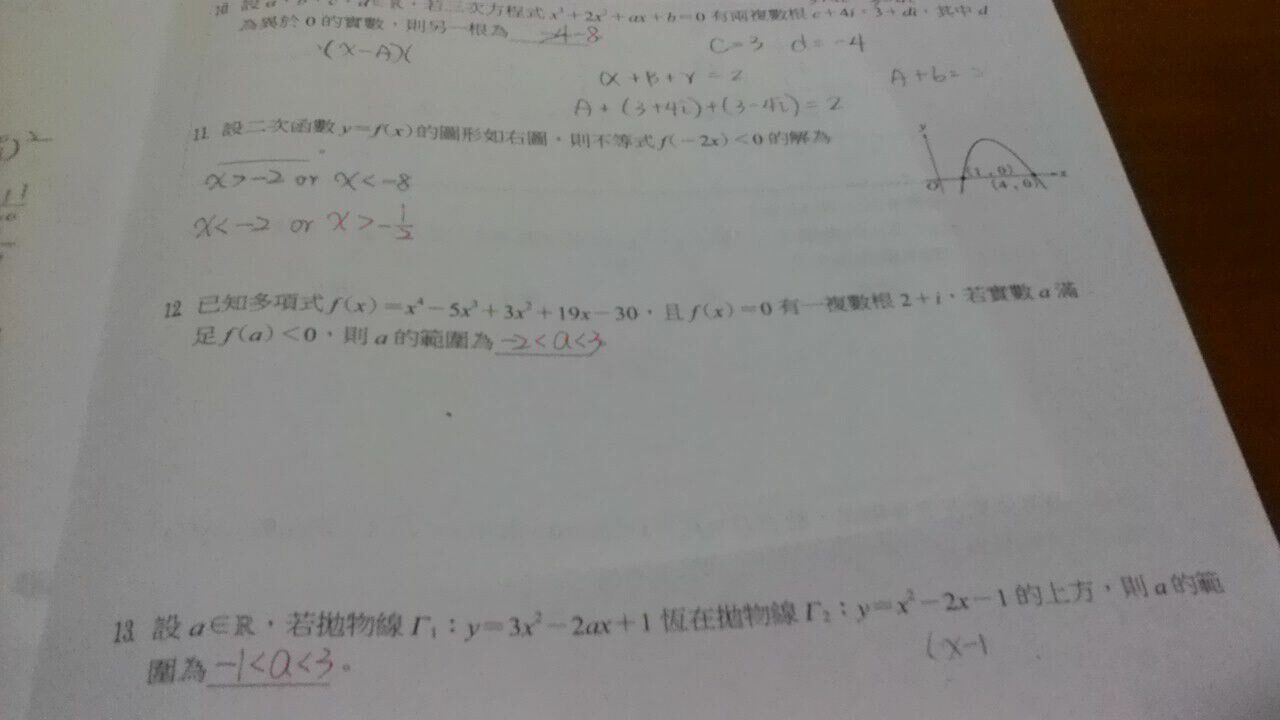 10 設 a、b、c、d∈ℝ,若三次方程式 x³+2x²+ax+b=0 有兩複數根 c+4i、3+di,其中 d
為異於 0 的實數,則另一根為 -8
(x-A)(
C=3 d=-4
α+β+γ=2
A+b=
A+(3+4i)+(3-4i)=2
11 設二次函數 y=f(x)的圖形如右圖,則不等式 f(-2x)<0 的解為
。
y
O
(1,0)
(4,0)
x
x>-2 or x<-8
x<-2 or x>-1/2
12 已知多項式 f(x)=x⁴-5x³+3x²+19x-30,且 f(x)=0 有一複數根 2+i,若實數 a 滿
足 f(a)<0,則 a 的範圍為 -2<a<3
13 設 a∈ℝ,若拋物線 Γ₁:y=3x²-2ax+1 恆在拋物線 Γ₂:y=x²-2x-1 的上方,則 a 的範
圍為 -1<a<3。
(x-1